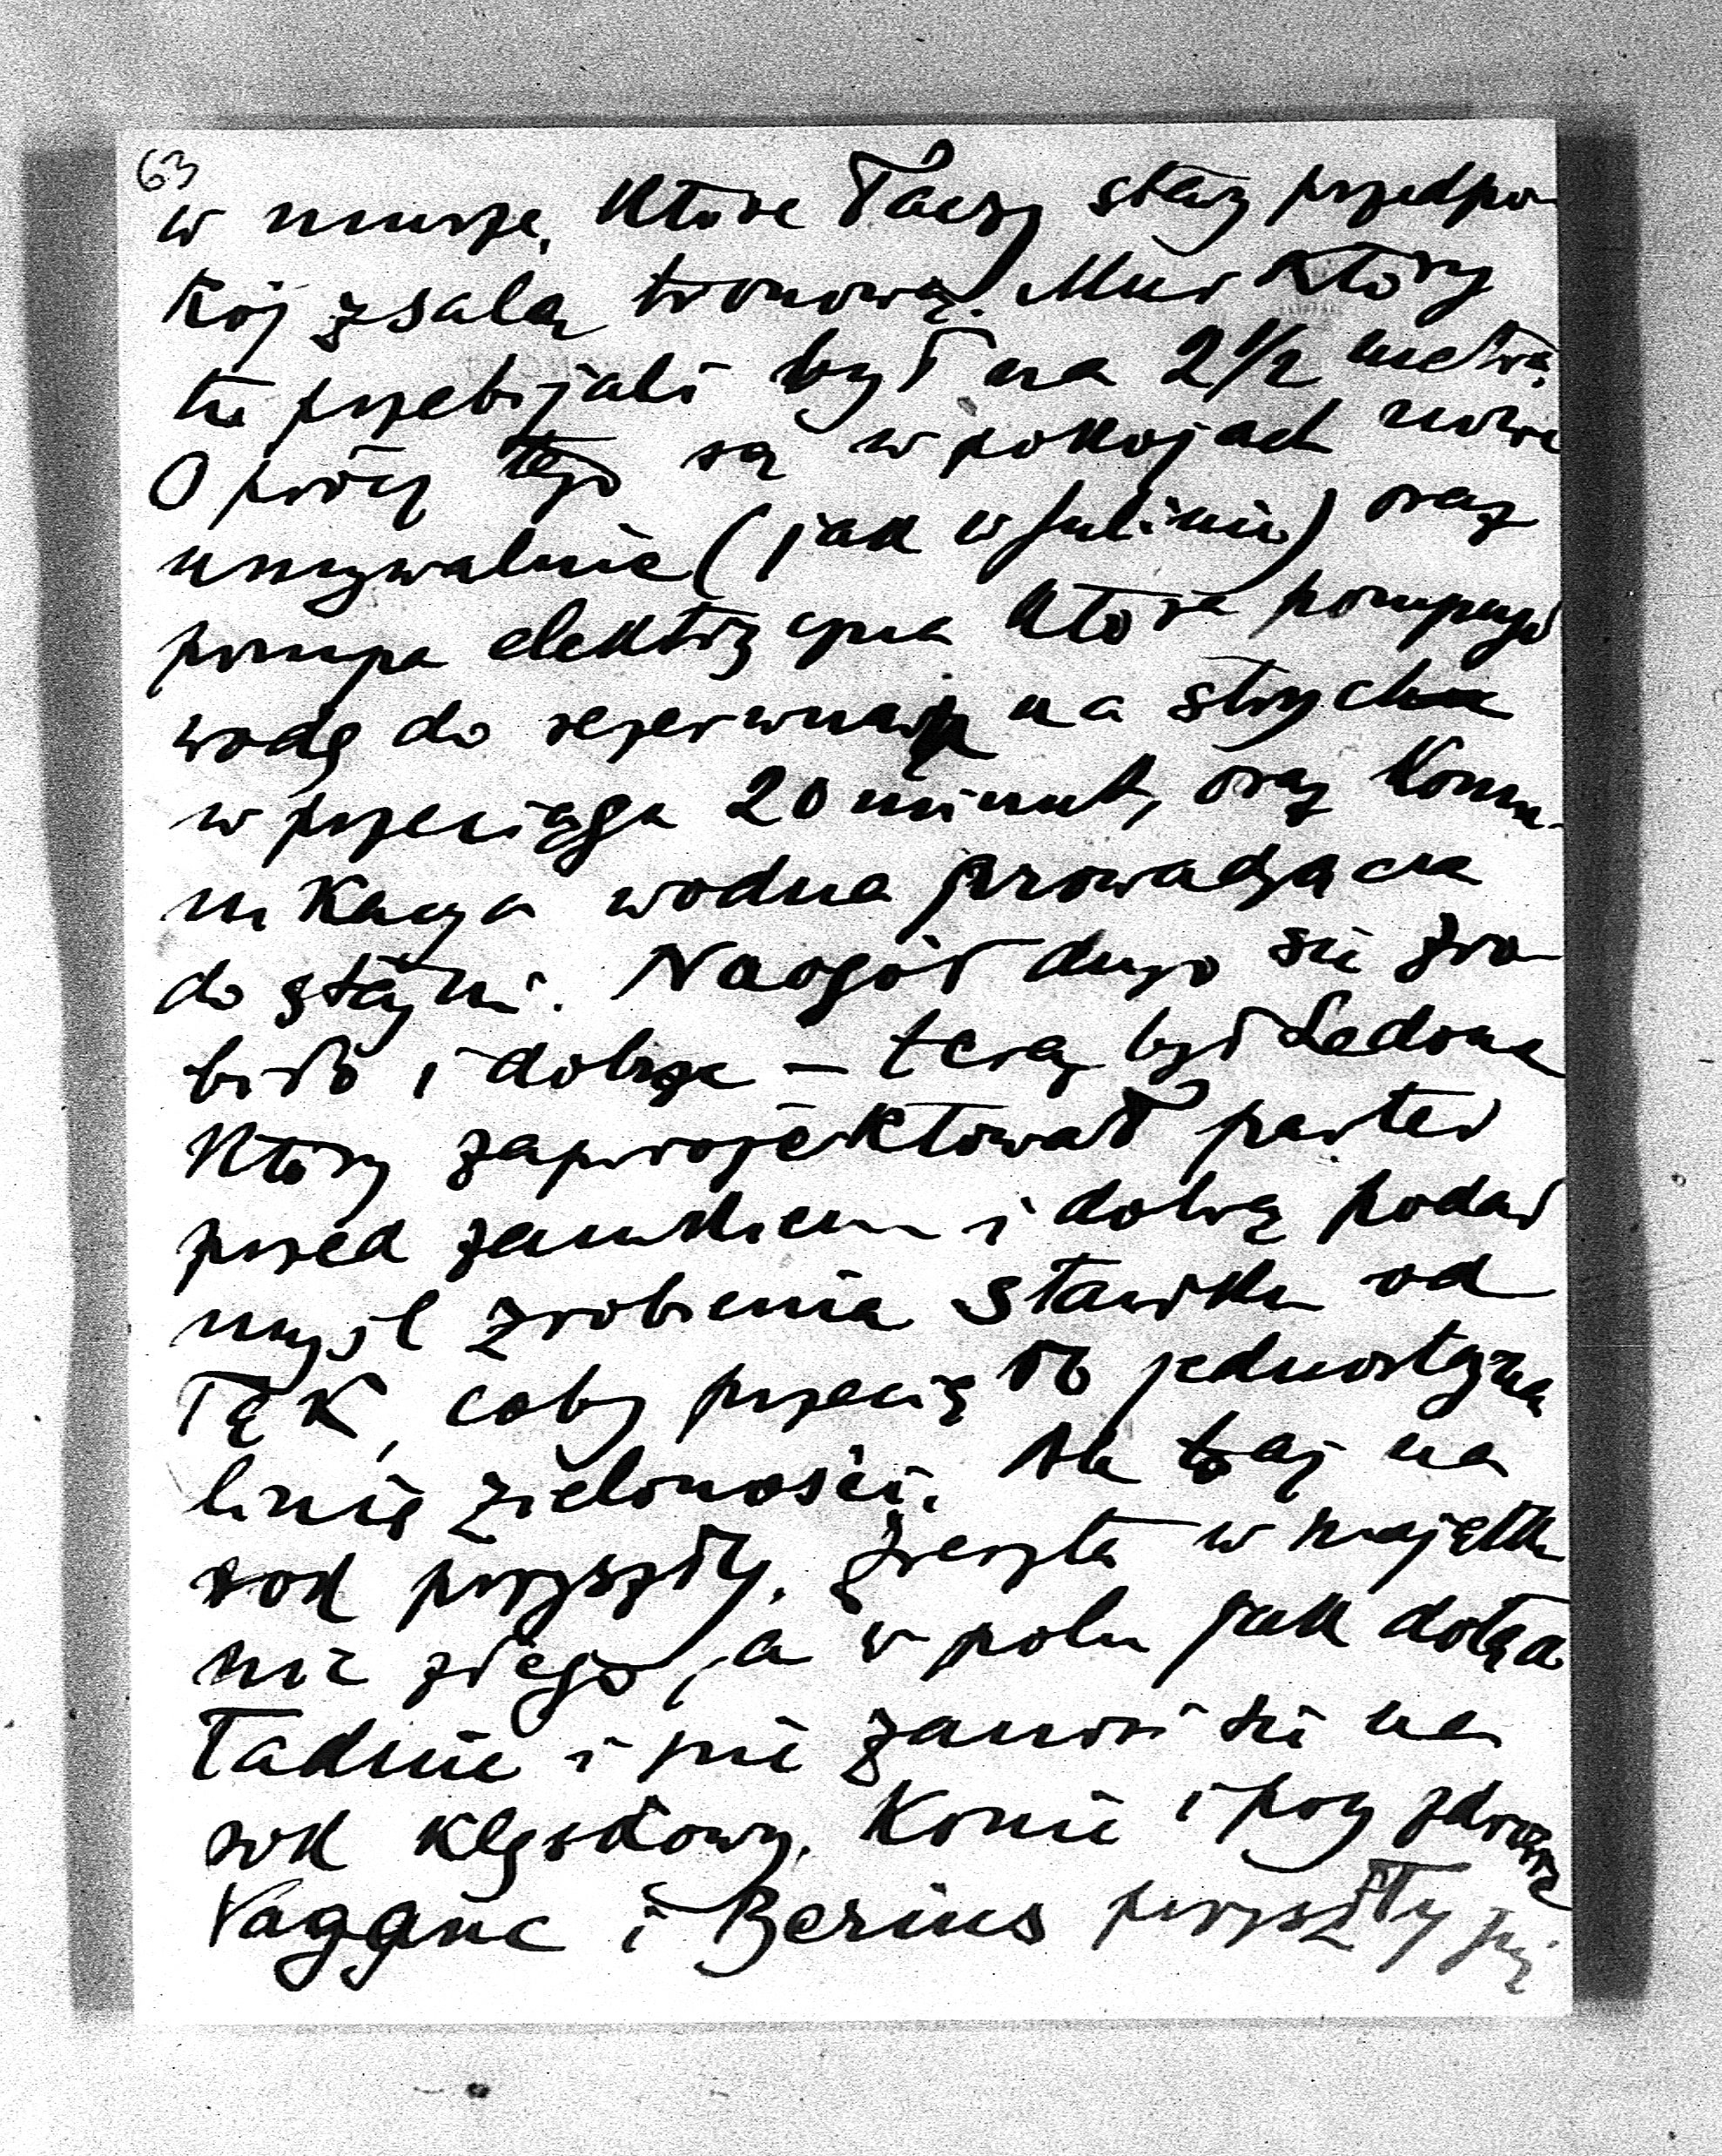 63
w murze, które łączy stary przedpo-
kój z salą tronową. Mur który
tu przebijali był na 2 1/2 metra.
Oprócz tego są w pokojach nowe
umywalnie (jak w Julinie) oraz
pompa elektryczna która pompuje
wodę do rezerwuaru na strychu
w przeciągu 20 minut, oraz komu-
nikacya wodna prowadząca
do stajni. Naogół dużo się zro-
biło i dobrze – teraz był Ledóna
który zaprojektował parter
przed zamkiem i dobrą podał
myśl zrobienia stawku od
łąk, coby przecięło jednostajną
linię zieloności. Ale to aj na
rok przyszły. Zresztą w majątku
nic złego, a w polu jak dotąd
ładnie i nie zanosi się na
rok klęskowy. Konie i psy zdrowe
i Berius przyszły już